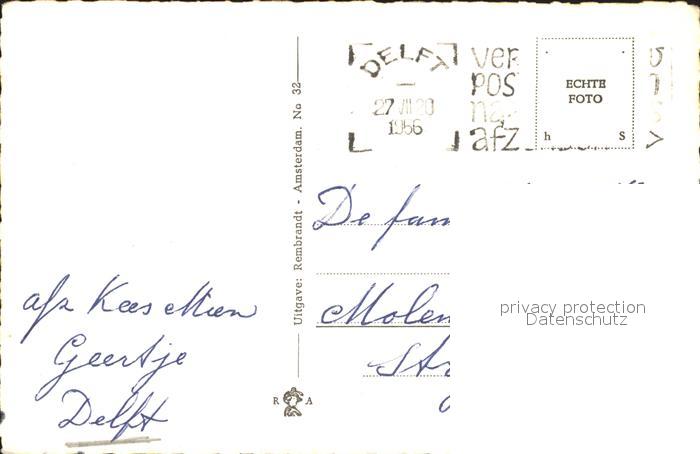 DELFT
27 VII 20
1956
ver
pos
na
afz
ECHTE
FOTO
h S
Uitgave: Rembrandt - Amsterdam. No 32
De fam
Molen
Str
privacy protection
Datenschutz
afz Kees Mien
Geertje
Delft
R A